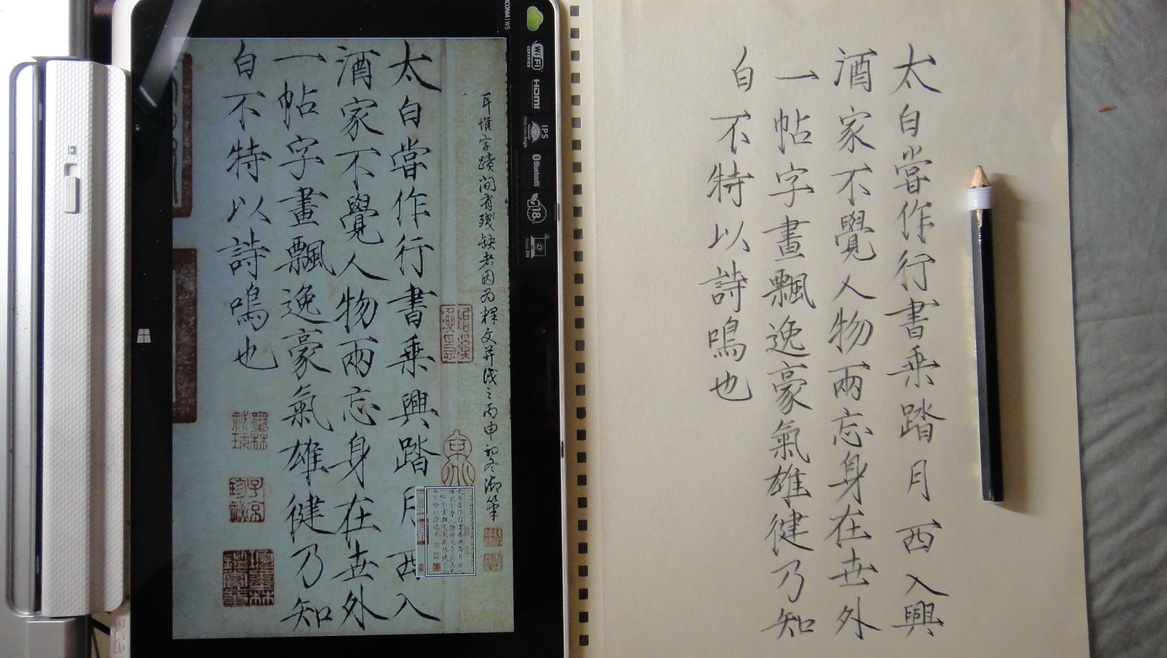 太白嘗作行書乘興踏月西入興
酒家不覺人物兩忘身在世外
一帖字畫飄逸豪氣雄健乃知
白不特以詩鳴也
耳惟字蹟间有残缺者因为释文并识之丙申初冬御筆
太白嘗作行書乘興踏月西入
酒家不覺人物兩忘身在世外
一帖字畫飄逸豪氣雄健乃知
白不特以詩鳴也
WiFi
HDMI
IPS
Bluetooth